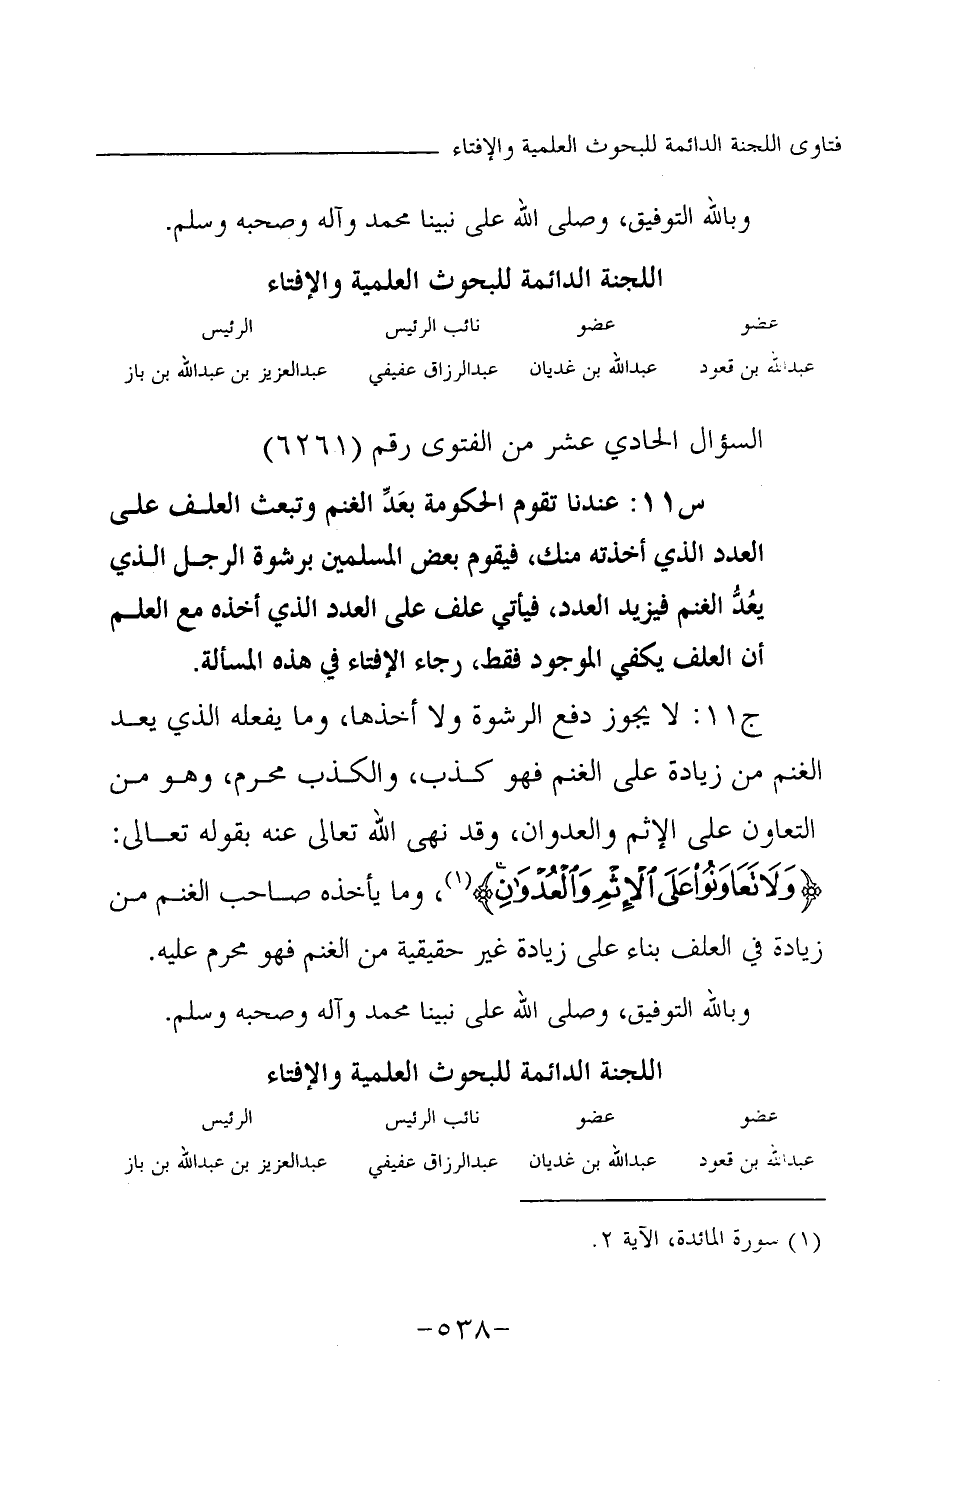 فتاوى اللجنة الدائمة للبحوث العلمية والإفتاء
وبالله التوفيق، وصلى الله على نبينا محمد وآله وصحبه وسلم.
اللجنة الدائمة للبحوث العلمية والإفتاء
عضو عضو نائب الرئيس الرئيس
عبدالله بن قعود عبدالله بن غديان عبدالرزاق عفيفي عبدالعزيز بن عبدالله بن باز
السؤال الحادي عشر من الفتوى رقم (٦٢٦١)
س١١: عندنا تقوم الحكومة بعَدِّ الغنم وتبعث العلف على
العدد الذي أخذته منك، فيقوم بعض المسلمين برشوة الرجل الذي
يعُدُّ الغنم فيزيد العدد، فيأتي علف على العدد الذي أخذه مع العلم
أن العلف يكفي الموجود فقط، رجاء الإفتاء في هذه المسألة.
ج١١: لا يجوز دفع الرشوة ولا أخذها، وما يفعله الذي يعد
الغنم من زيادة على الغنم فهو كذب، والكذب محرم، وهو من
التعاون على الإثم والعدوان، وقد نهى الله تعالى عنه بقوله تعالى:
﴿وَلَا تَعَاوَنُوا۟ عَلَى ٱلْإِثْمِ وَٱلْعُدْوَٰنِ﴾(١)، وما يأخذه صاحب الغنم من
زيادة في العلف بناء على زيادة غير حقيقية من الغنم فهو محرم عليه.
وبالله التوفيق، وصلى الله على نبينا محمد وآله وصحبه وسلم.
اللجنة الدائمة للبحوث العلمية والإفتاء
عضو عضو نائب الرئيس الرئيس
عبدالله بن قعود عبدالله بن غديان عبدالرزاق عفيفي عبدالعزيز بن عبدالله بن باز
(١) سورة المائدة، الآية ٢.
-٥٣٨-